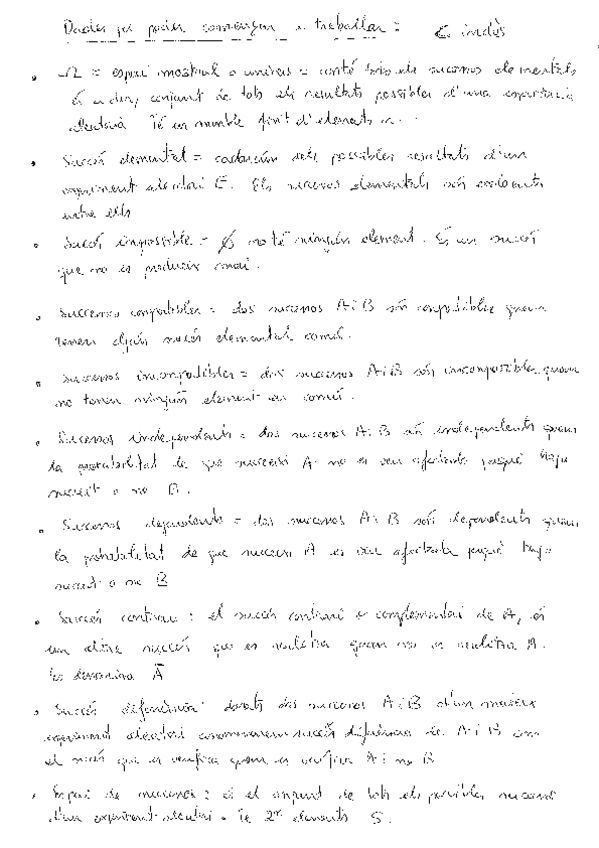 Dades per poder començar a treballar:
• Ω = espai mostral o univers = conté tots els sucesos elementals
és a dir, conjunt de tots els resultats possibles d'una experiència
aleatoria Té un nombre finit d'elements n.
• Succés elemental = cadascún dels possibles resultats d'un
experiment aleatori E. Els sucesos elementals són
entre ells
• Succés impossible = Ø no té ningún element. És un succés
que no es produeix mai.
• Successos compatibles = dos sucesos A i B són compatibles quan
tenen algún succés elemental comú.
• Sucesos incompatibles = dos sucesos A i B són incompatibles quan
no tenen ningún element en comú.
• Sucesos independents = dos sucesos A i B són independents quan
la probabilitat de que succeixi A no es veu afectada perquè haja
succeït o no B.
• Sucesos dependents = dos sucesos A i B són dependents quan
la probabilitat de que succeixi A es veu afectada perquè haja
succeït o no B
• Succés contrari: el succés contrari o complementari de A, és
un altre succés que es realitza quan no es realitza A.
Es denomina Ā
• Succés diferència: donats dos sucesos A i B d'un mateix
experiment aleatori anomenarem succés diferència de A i B com
el succés que es verifica quan es verifica A i no B
• Espai de sucesos: és el conjunt de tots els possibles sucesos
d'un experiment aleatori. Té 2ⁿ elements S.